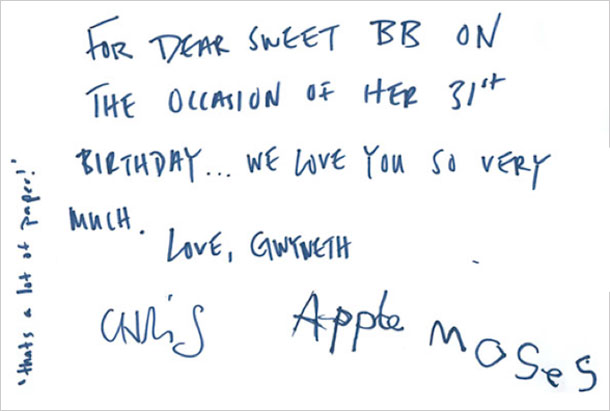 FOR DEAR SWEET BB ON
THE OCCASION OF HER 31st
BIRTHDAY... WE LOVE YOU SO VERY
MUCH.
LOVE, GWYNETH
CHRIS
Apple
MOSeS
"thats a lot of paper!"